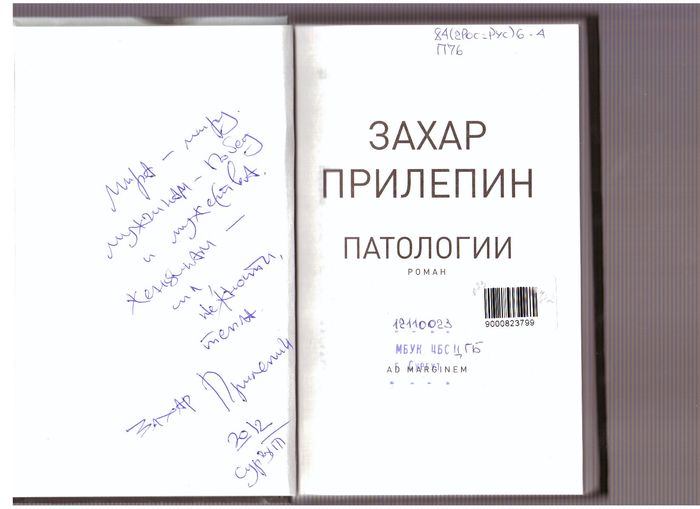 Мира – миру.
мужчинам – побед
и мужества.
Женщинам –
нежности,
тепла.
Захар Прилепин
2012
Сургут
84(2Рос=Рус)6-4
П76
ЗАХАР
ПРИЛЕПИН
ПАТОЛОГИИ
РОМАН
9000823799
12110023
МБУК ЦБС ЦГБ
г. Сургут
AD MARGINEM